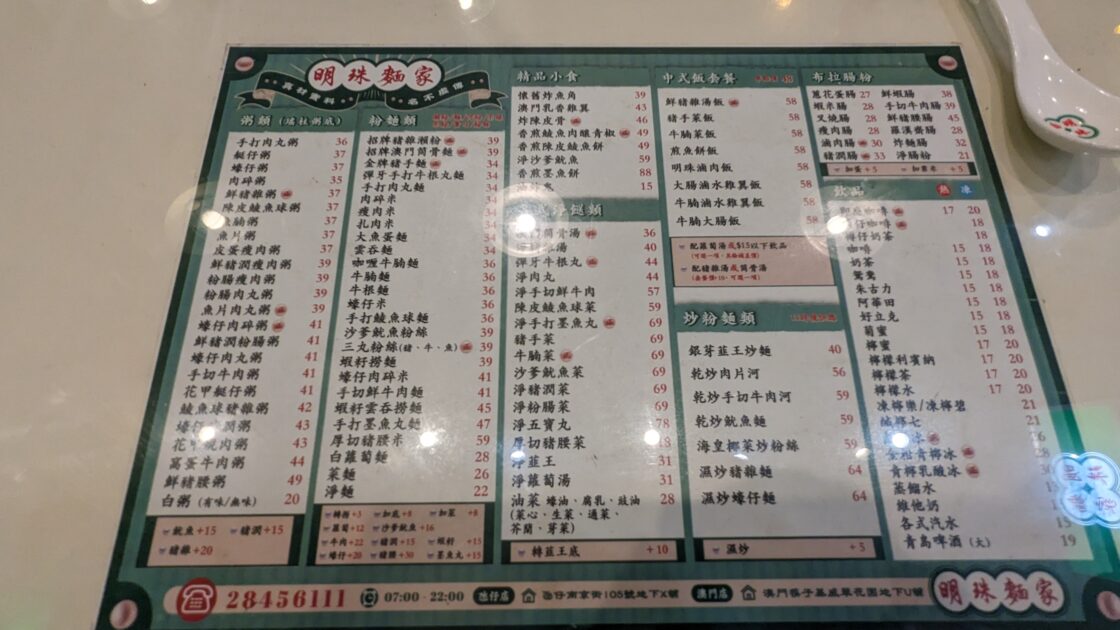 明珠麵家
真材實料 名不虛傳
粥類 (瑤柱粥底)
手打肉丸粥 36
艇仔粥 37
蠔仔粥 37
肉碎粥 35
鮮豬雜粥 37
陳皮鯪魚球粥 37
魚腩粥 37
魚片粥 37
皮蛋瘦肉粥 37
鮮豬潤瘦肉粥 39
粉腸瘦肉粥 39
粉腸肉丸粥 39
魚片肉丸粥 39
蠔仔肉碎粥 41
鮮豬潤粉腸粥 41
蠔仔肉丸粥 41
手切牛肉粥 41
花甲艇仔粥 41
鯪魚球豬雜粥 42
蠔仔豬潤粥 43
花甲瘦肉粥 43
窩蛋牛肉粥 44
鮮豬腰粥 49
白粥 (有味/無味) 20
魷魚+15 豬潤+15
豬雜+20
粉麵類
招牌豬雜瀨粉 39
招牌澳門筒骨麵 39
金牌豬手麵 34
彈牙手打牛根丸麵 34
手打肉丸麵 34
肉碎米 34
瘦肉米 34
扎肉米 34
大魚蛋麵 34
雲吞麵 34
咖喱牛腩麵 36
牛腩麵 36
牛根麵 36
蠔仔米 36
手打鯪魚球麵 36
沙爹魷魚粉絲 39
三丸粉絲(豬、牛、魚) 39
蝦籽撈麵 39
蠔仔肉碎米 41
手切鮮牛肉麵 41
蝦籽雲吞撈麵 45
手打墨魚丸麵 47
厚切豬腰米 59
白蘿蔔麵 28
菜麵 26
淨麵 22
轉撈+3 如底+8 如菜 +8
蘿蔔+12 沙爹魷魚+16
牛肉+22 豬潤+15 蝦籽 +15
蠔仔+20 豬腰+30 墨魚丸+15
精品小食
懷舊炸魚角 39
澳門乳香雞翼 43
炸陳皮骨 46
香煎鯪魚肉釀青椒 49
香煎陳皮鯪魚餅 49
淨沙爹魷魚 59
香煎墨魚餅 88
15
澳門筒骨湯 36
40
彈牙牛根丸 44
淨肉丸 44
淨手切鮮牛肉 57
陳皮鯪魚球菜 59
淨手打墨魚丸 69
豬手菜 69
牛腩菜 69
沙爹魷魚菜 69
淨豬潤菜 69
淨粉腸菜 69
淨五寶丸 78
厚切豬腰菜
淨韮王 31
淨蘿蔔湯 31
油菜 蠔油、腐乳、豉油 28
(菜心、生菜、通菜、
芥蘭、芽菜)
轉韮王底 +10
中式飯套餐
鮮豬雜湯飯 58
豬手菜飯 58
牛腩菜飯 58
煎魚餅飯 58
明珠滷肉飯 58
大腸滷水雞翼飯 58
牛腩滷水雞翼飯 58
牛腩大腸飯 58
配蘿蔔湯或$15以下飲品
配豬雜湯或筒骨湯
炒粉麵類
銀芽韮王炒麵 40
乾炒肉片河 56
乾炒手切牛肉河 59
乾炒魷魚麵 59
海皇椰菜炒粉絲 59
濕炒豬雜麵 64
濕炒蠔仔麵 64
濕炒 +5
布拉腸粉
蔥花蛋腸 27 鮮蝦腸 38
蝦米腸 28 手切牛肉腸 39
叉燒腸 28 鮮豬腰腸 45
瘦肉腸 28 羅漢齋腸 28
滷肉腸 30 炸麵腸 32
豬潤腸 33 淨腸粉 21
加蛋+5
飲品 熱 凍
17 20
18
咖啡 15 18
奶茶 15 18
鴛鴦 15 18
朱古力 15 18
阿華田 15 18
好立克 15 18
菊蜜 15 18
檸蜜 17 20
檸檬利賓納 17 20
檸檬茶 17 20
檸檬水 17 20
凍檸樂/凍檸碧 21
鹹檸七 21
金桔青檸冰
青檸乳酸冰
蒸餾水
維他奶
各式汽水
青島啤酒 (大) 19
28456111 07:00 - 22:00 氹仔店 氹仔南京街105號地下X舖 澳門店 澳門筷子基威翠花園地下U舖
明珠麵家